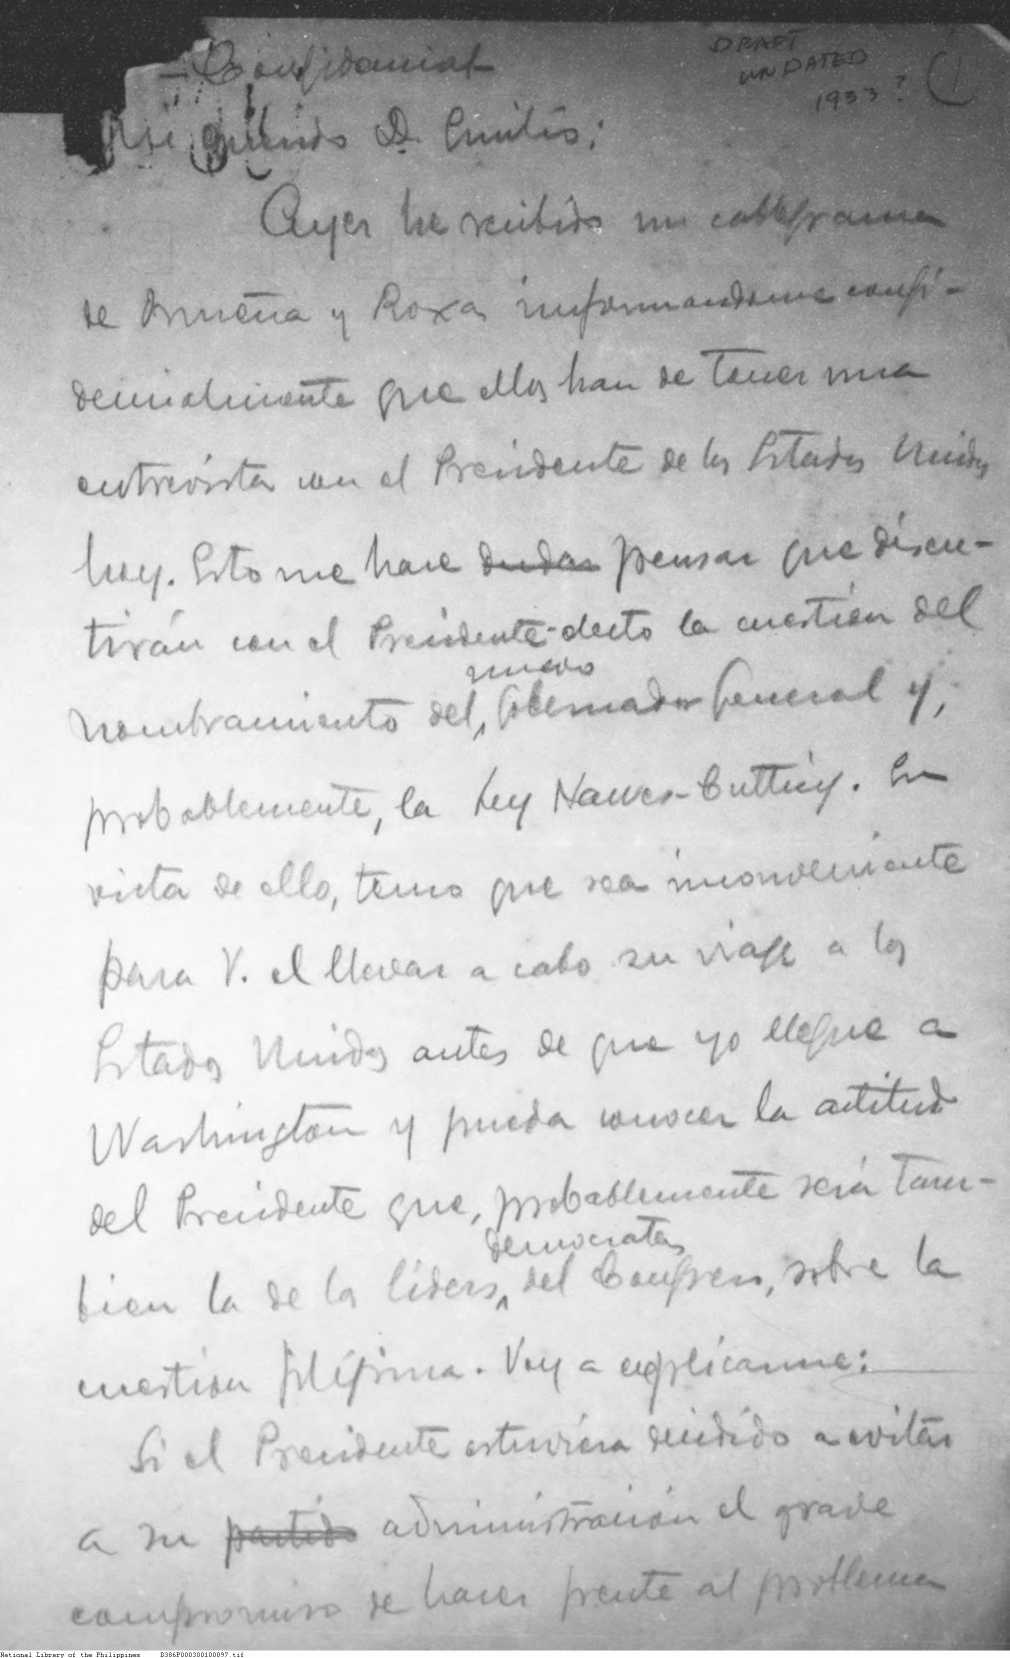 - Confidencial -
DRAFT
UNDATED
1933?
(1)
Mi querido D. Emilio:
Ayer he recibido un cablegrama
de Osmeña y Roxas informandome confi-
dencialmente que ellos han de tener una
entrevista con el Presidente de los Estados Unidos
hoy. Esto me hace dudar pensar que discu-
tirán con el Presidente-electo la cuestión del
nuevo
nombramiento del, Gobernador General y,
probablemente, la Ley Hawes-Cutting. En
vista de ello, temo que sea inconveniente
para V. el llevar a cabo su viaje a los
Estados Unidos antes de que yo llegue a
Washington y pueda conocer la actitud
del Presidente que, probablemente será tam-
democratas
bien la de los líders, del Congreso, sobre la
cuestion filipina. Voy a explicarme:
Si el Presidente estuviera decidido a evitar
a su partido administración el grave
compromiso de hacer frente al problema
National Library of the Philippines D386P000300100097.tif